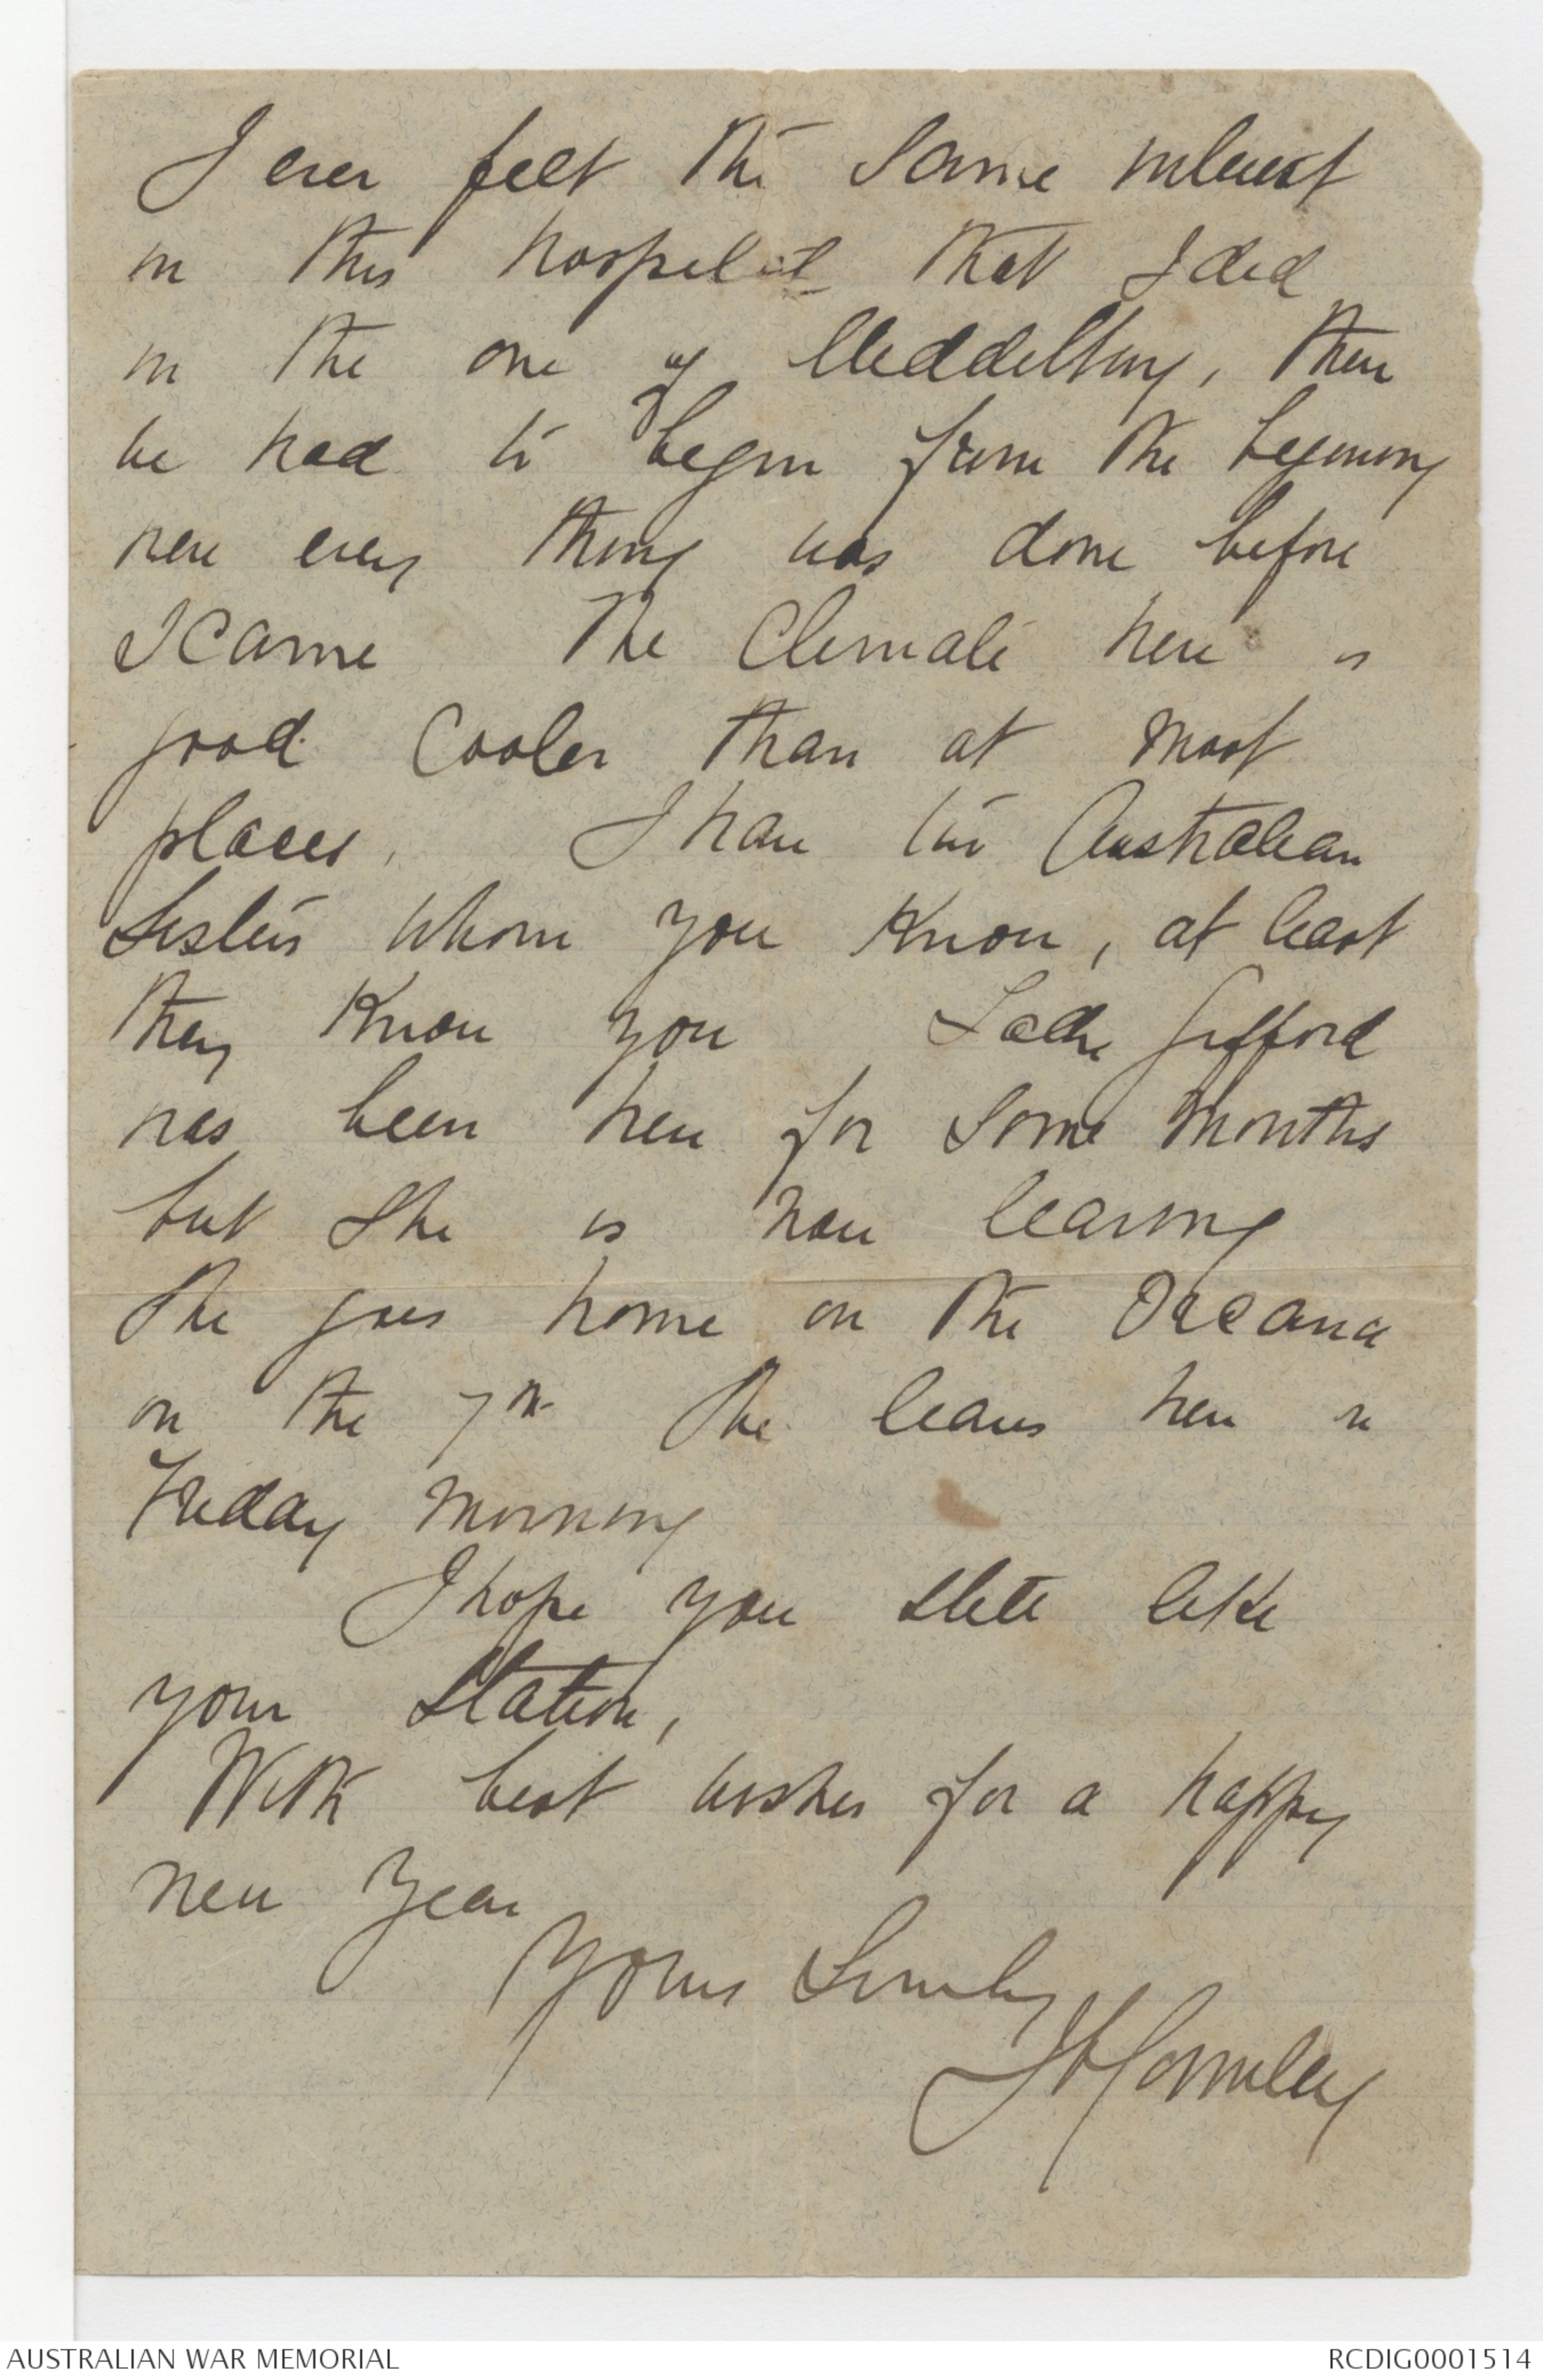 I ever felt the same interest
in this hospital that I did
in the one of Middelburg, there
we had to begin from the beginning
here every thing was done before
I came The Climate here is
good Cooler than at most
places. I have two Australian
Sisters whom you know, at least
they know you Gifford
has been here for some months
but she is now leaving
She goes home on the Oceana
on the 7th She leaves here on
Friday morning
I hope you still like
your Station,
With best wishes for a happy
new year
Yours Sincerely
AUSTRALIAN WAR MEMORIAL
RCDIG0001514